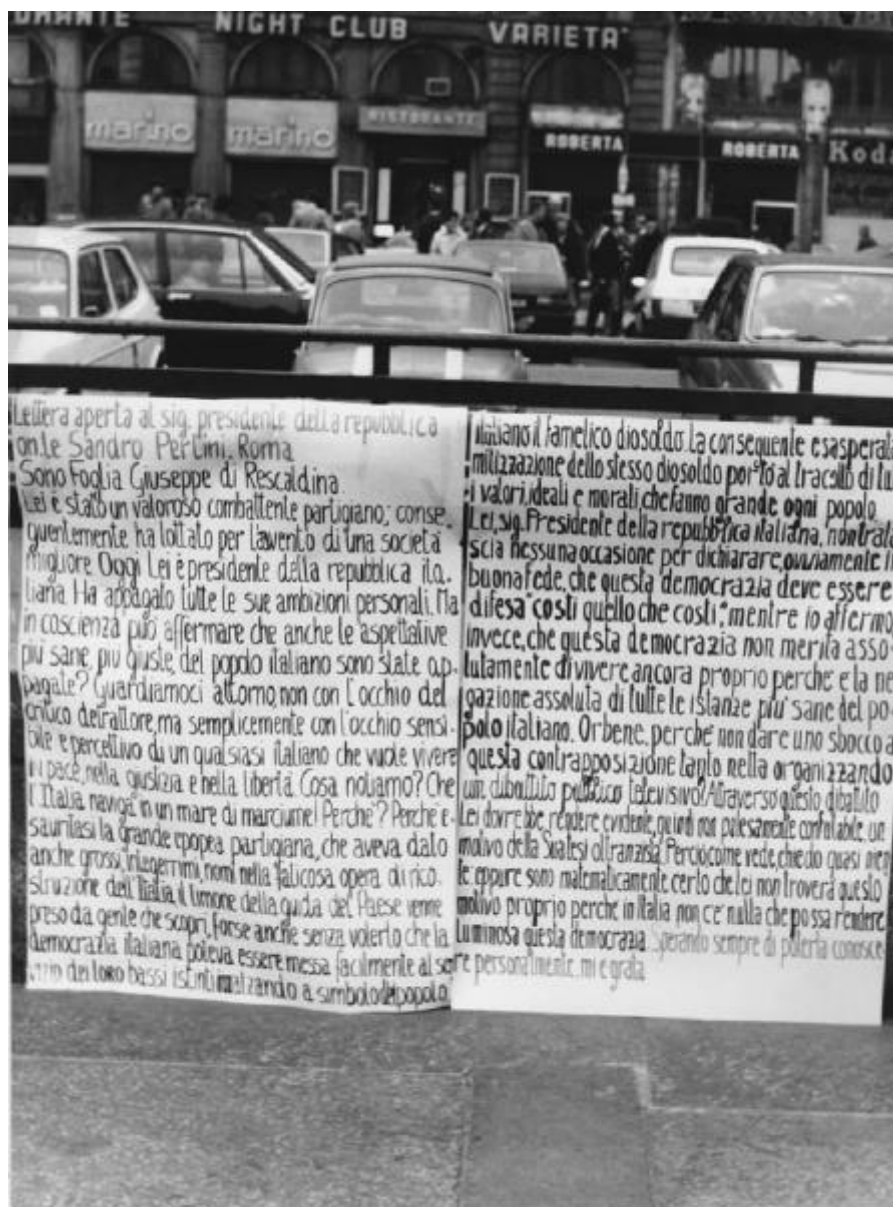 ORANTE NIGHT CLUB VARIETA'
marino marino RISTORANTE ROBERTA ROBERTA Koda
Lettera aperta al sig. presidente della repubblica
on.le Sandro Pertini. Roma
Sono Foglia Giuseppe di Rescaldina
Lei è stato un valoroso combattente partigiano; conse.
guentemente ha lottato per l'avvento di una società
migliore Oggi Lei è presidente della repubblica ita.
liana Ha appagato tutte le sue ambizioni personali. Ma
in coscienza può affermare che anche le aspettative
più sane, più giuste, del popolo italiano sono state ap.
pagate? Guardiamoci attorno, non con l'occhio del
critico detrattore, ma semplicemente con l'occhio sensi.
bile e percettivo di un qualsiasi italiano che vuole vivere
in pace, nella giustizia e nella libertà. Cosa notiamo? Che
l'Italia naviga in un mare di marciume! Perchè? Perchè e.
sauritasi la grande epopea partigiana, che aveva dato
anche grossi, integerrimi, nomi nella faticosa opera di rico.
struzione dell'Italia il timone della guida del Paese venne
preso da gente che scoprì, forse anche senza volerlo che la
democrazia italiana poteva essere messa facilmente al ser
vizio dei loro bassi istinti inalzando a simbolo del popolo
italiano il famelico dio soldo. La conseguente esasperata
mitizzazione dello stesso dio soldo portò al tracollo di tu
i valori, ideali e morali che fanno grande ogni popolo
Lei, sig. Presidente della repubblica italiana, non trala
scia nessuna occasione per dichiarare, ovviamente in
buona fede, che questa democrazia deve essere
difesa "costi quello che costi", mentre io affermo
invece, che questa democrazia non merita asso-
lutamente di vivere ancora proprio perche è la ne
gazione assoluta di tutte le istanze piu' sane del po
polo italiano. Orbene, perche' non dare uno sbocco a
questa contrapposizione tanto netta organizzando
un dibattito pubblico televisivo? Attraverso questo dibattito
Lei dovrebbe, rendere evidente, quindi non palesamente confutabile, un
motivo della Sua tesi oltranzista. Perciò come vede, chiedo quasi nien
te eppure sono matematicamente certo che lei non troverà questo
motivo proprio perche in Italia non c'è nulla che possa rendere
luminosa questa democrazia. Sperando sempre di poterla conosce
re personalmente. mi è grata